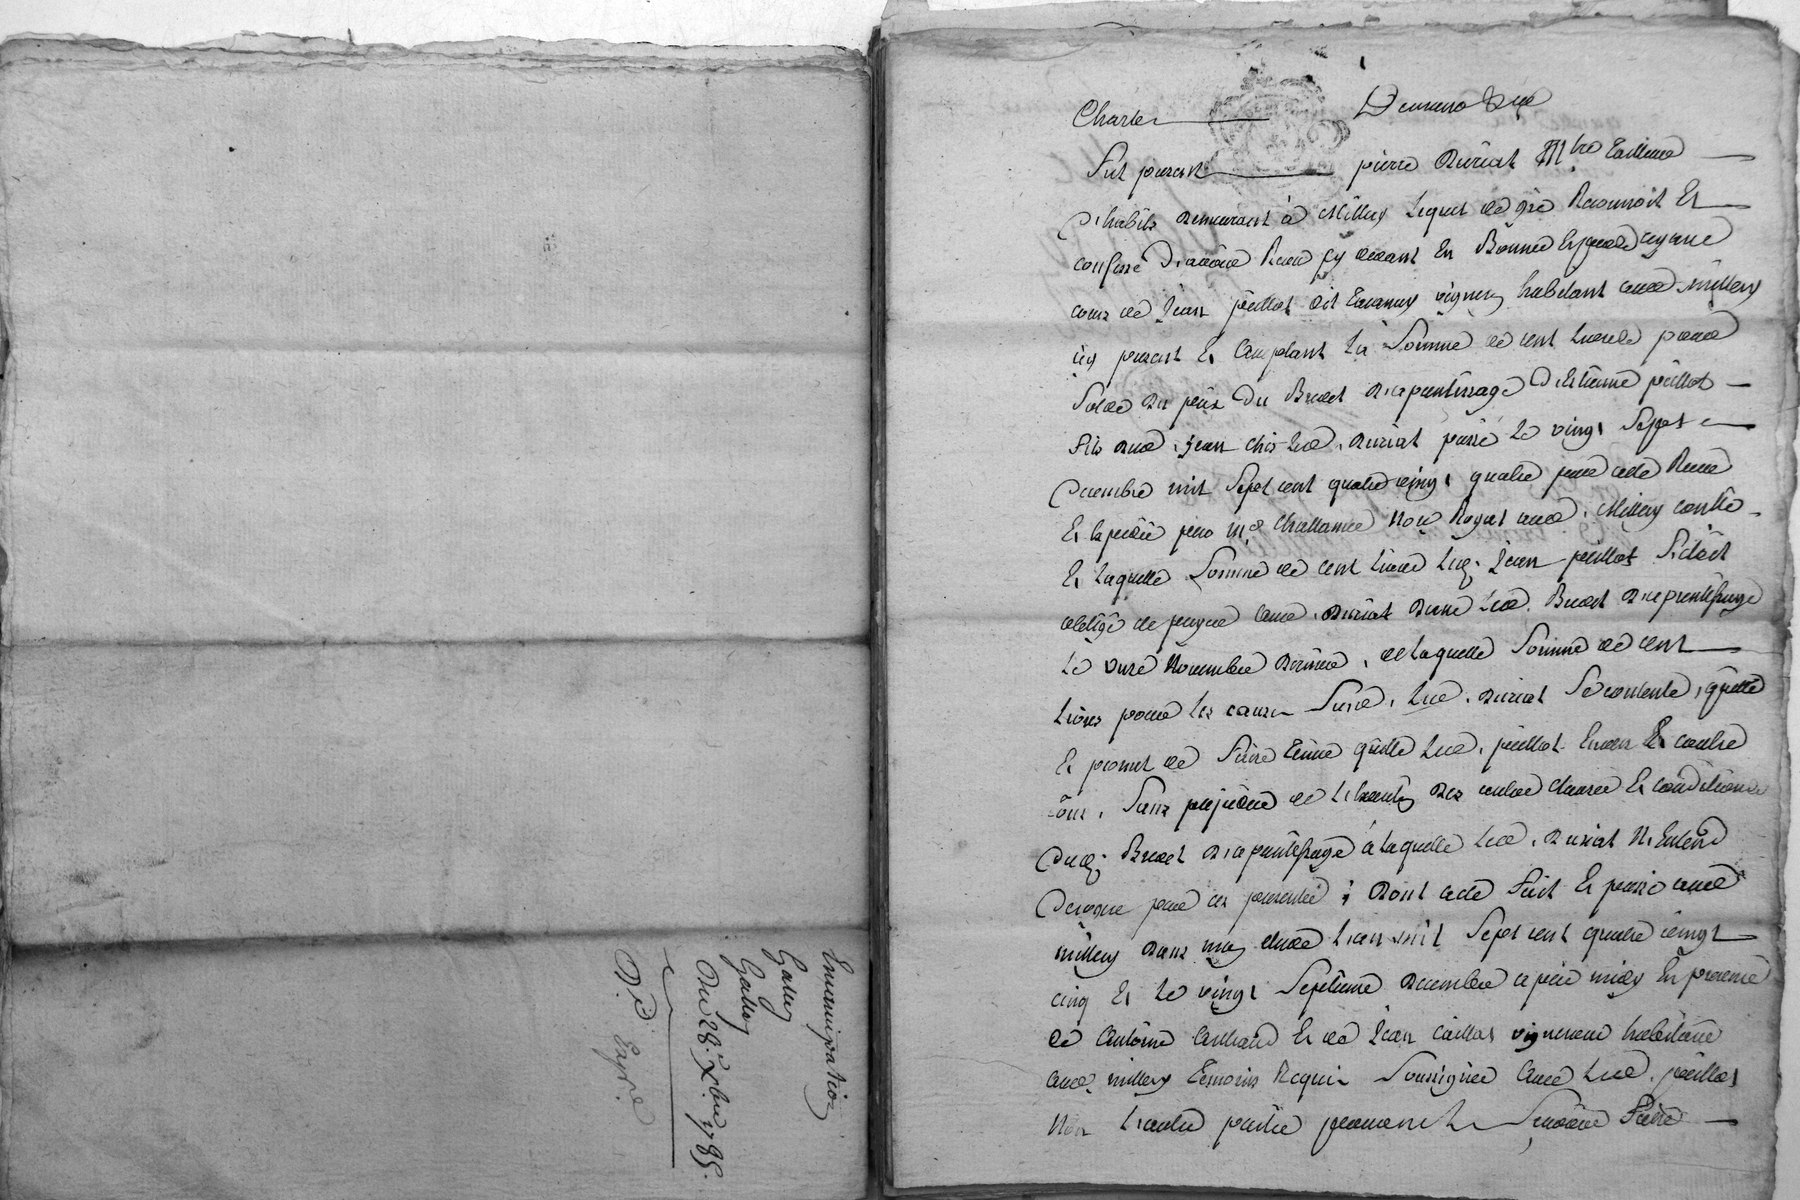 Emancipation
Galley
Galley
Du 28.e Xbre 1785.
D.é Expé.é
Charles
Fut present pierre Duriat M.tre tailleur
d'habits demeurant à Millery lequel de gré Reconnoit Et
confesse d'avoir Recu cy devant En Bonnes Especes ayant
cours de Jean peillot dit vigneron habitant aud. millery
icy present Et acceptant la Somme de cent livres pour
Solde du prix du Brevet d'apantissage d'Estienne peillot
fils dud. Jean chés led. duriat passé le vingt Sept
Decembre mil Sept cent quatre vingt quatre par acte Recu
Et Expedié par M.e Challamel No.re Royal aud. Millery
Et laquelle Somme de cent livres led. Jean peillot S'étoit
obligé de payer aud. duriat dans led. Brevet d'aprentissage
le onze Novembre dernier, de laquelle Somme de cent
livres pour les causes Susd. led. duriat Se contente, quitte
Et promet de faire tenir quitte led. peillot Envers Et contre
tous, Sans prejudice de des autres clauses Et conditions
dud. Brevet d'apantissage à laquelle led. duriat N'Entend
deroger par ces presentes; dont acte fait Et passé aud.
millery dans mon etude l'an mil Sept cent quatre vingt
cinq Et le vingt Septieme decembre après midy En presence
de Antoine Et de Jean vignerons habitans
aud. millery temoins Requis Soussignés avec led. peillot
Non l'autre partie pour ne le Sçavoir faire